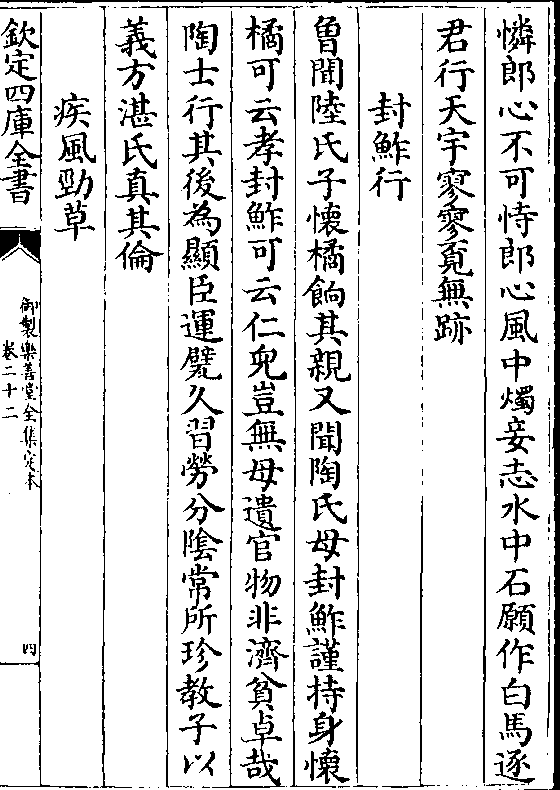 憐郎心不可恃郎心風中燭妾志水中石願作白馬逐
君行天宇寥寥覔無跡
封鮓行
曾聞陸氏子懷橘餉其親又聞陶氏母封鮓謹持身懷
橘可云孝封鮓可云仁兒豈無母遺官物非濟貧卓哉
陶士行其後為顯臣運甓久習勞分陰常所珍教子以
義方湛氏真其倫
疾風勁草
欽定四庫全書
御製樂善堂全集定本
卷二十二
四